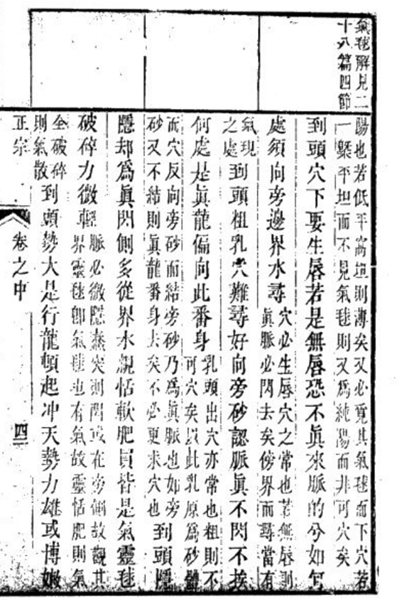 氣毬解見二
十八篇四節
陽也若低平高坦則薄矣又必覓其氣毬而下穴若
一槩平坦而不見氣毬則又為純陽而非可穴矣
到頭穴下要生唇若是無唇恐不真來脈的兮如何
處須向旁邊界水尋
穴必生唇穴之常也若無唇則
真脈必閃去矣傍界而尋當有
氣現
之處
到頭粗乳穴難尋好向旁砂認脈真不閃不挨
何處是真龍偏向此番身
乳頭出穴亦常也粗則不
可穴矣以此乳原為砂體
而穴反向旁砂而結旁砂乃為真脈也如旁
砂又不結則真龍番身去矣不必更求穴也
到頭隱
隱却為真閃側多從界水親恬軟肥員皆是氣靈毬
破碎力微輕
脈必微隱蓋突則閃或在旁側故觀其
界靈毬卽氣毬也有氣故靈恬肥則氣
全破碎
則氣散
到頭勢大是行龍頓起冲天勢力雄或博嫩
正宗
卷之中
四二